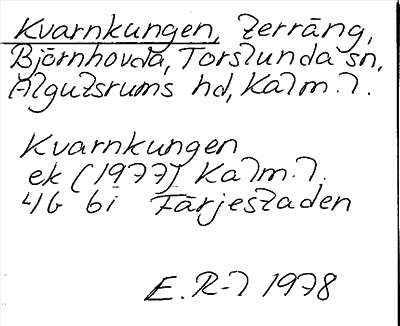 Kvarnkungen, terräng,
Björnhovda, Torslunda sn,
Algutsrums hd, Kalm. l.
Kvarnkungen
ek (1977) Kalm. l.
4G 6i Färjestaden
E. R-l 1978